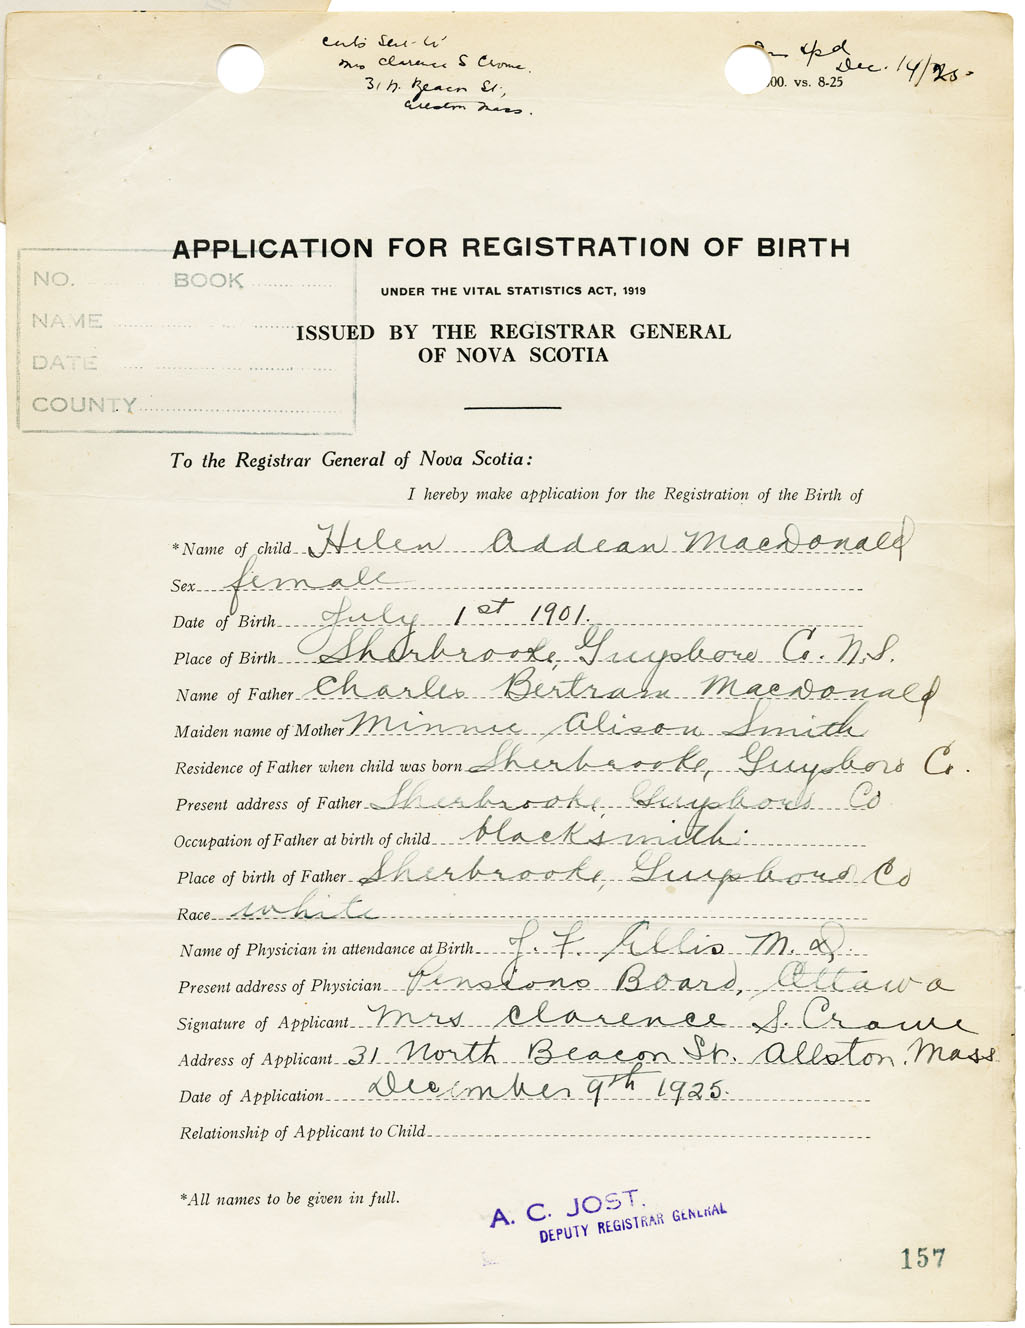 Cert. Sent to
Mrs Clarence S Crowe.
31 N. Beacon St.,
Allston Mass.
pd
Dec. 14/25.
00. vs. 8-25
APPLICATION FOR REGISTRATION OF BIRTH
NO. BOOK
UNDER THE VITAL STATISTICS ACT, 1919
NAME
ISSUED BY THE REGISTRAR GENERAL
OF NOVA SCOTIA
DATE
COUNTY
To the Registrar General of Nova Scotia:
I hereby make application for the Registration of the Birth of
*Name of child Helen Addean MacDonald
Sex female
Date of Birth July 1st 1901.
Place of Birth Sherbrooke, Guysboro Co. N.S.
Name of Father Charles Bertram MacDonald
Maiden name of Mother Minnie Alison Smith
Residence of Father when child was born Sherbrooke, Guysboro Co.
Present address of Father Sherbrooke, Guysboro Co
Occupation of Father at birth of child blacksmith.
Place of birth of Father Sherbrooke, Guysboro Co
Race white
Name of Physician in attendance at Birth J. F. Ellis M.D.
Present address of Physician Pensions Board, Ottawa
Signature of Applicant Mrs Clarence S. Crowe
Address of Applicant 31 North Beacon St. Allston, Mass
Date of Application December 9th 1925.
Relationship of Applicant to Child
*All names to be given in full.
A. C. JOST.
DEPUTY REGISTRAR GENERAL
157